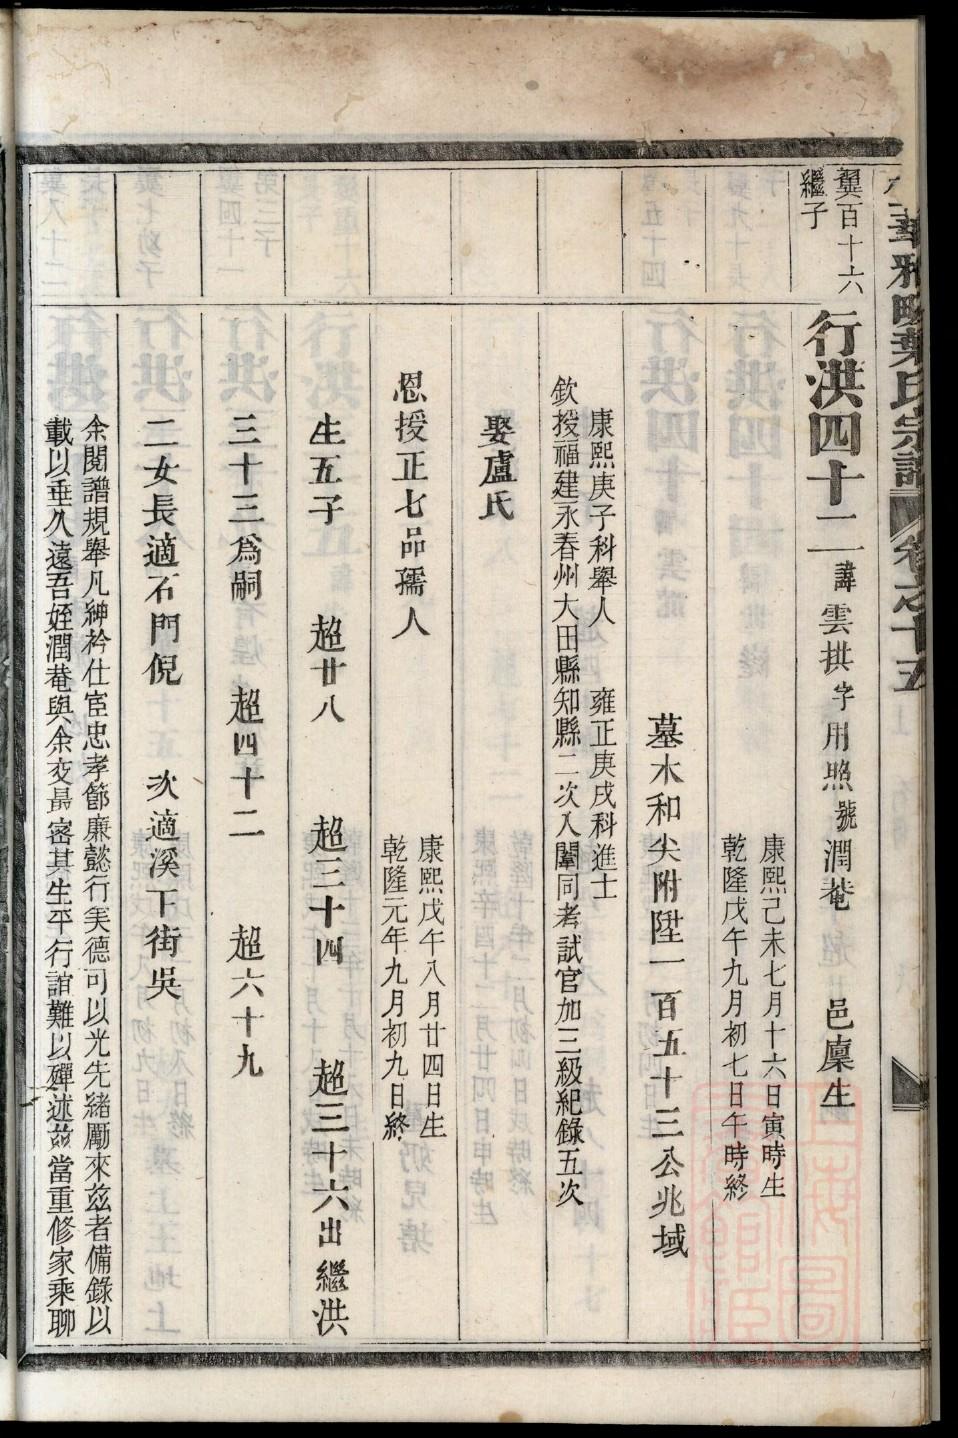 華雅畈葉氏宗譜 卷之十五
翼百十六
繼子
行洪四十二 諱雲拱字用照號潤菴 邑廩生
康熙己未七月十六日寅時生
乾隆戊午九月初七日午時終
墓木和尖附陞一百五十三公兆域
康熙庚子科舉人 雍正庚戌科進士
欽授福建永春州大田縣知縣二次入闈同考試官加三級紀錄五次
娶盧氏
恩授正七品孺人
康熙戊午八月廿四日生
乾隆元年九月初九日終
生五子 超廿八 超三十四 超三十六出繼洪
三十三為嗣 超四十二 超六十九
二女長適石門倪 次適溪下街吳
余閱譜規舉凡紳衿仕宦忠孝節廉懿行実德可以光先緒勵來玆者備錄以
載以垂久遠吾姪潤菴與余交最密其生平行誼難以殫述玆當重修家乘聊